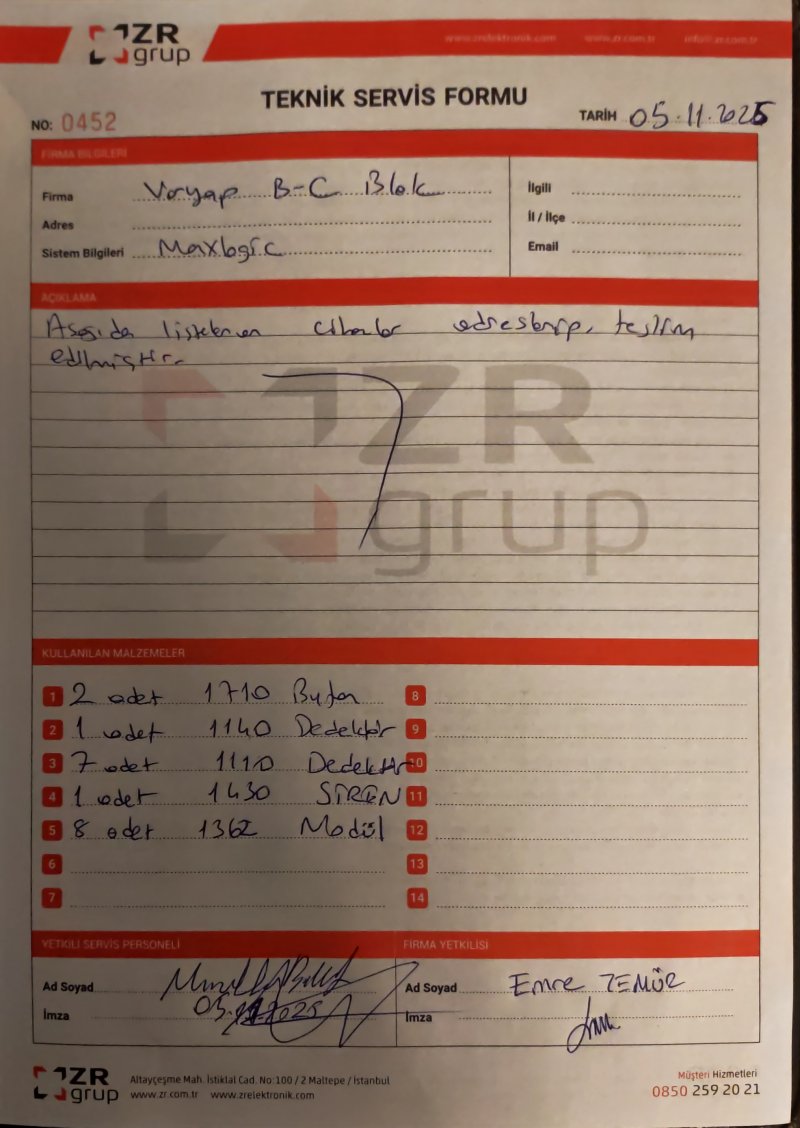 ZR grup
www.zrelektronik.com www.zr.com.tr info@zr.com.tr
TEKNİK SERVİS FORMU
NO: 0452
TARİH 05.11.2025
FİRMA BİLGİLERİ
Firma Varyap B-C Blok
Adres
Sistem Bilgileri Maxlogic
İlgili
İl / İlçe
Email
AÇIKLAMA
Aşağıda listelenen cihazlar adreslenip, teslim
edilmiştir.
ZR
grup
KULLANILAN MALZEMELER
1 2 adet 1710 Buton
2 1 adet 1140 Dedektör
3 7 adet 1110 Dedektör
4 1 adet 1430 SİREN
5 8 adet 1362 Modül
6
7
8
9
10
11
12
13
14
YETKİLİ SERVİS PERSONELİ
Ad Soyad
İmza
FİRMA YETKİLİSİ
Ad Soyad Emre
İmza
ZR grup
Altayçeşme Mah. İstiklal Cad. No:100 / 2 Maltepe / İstanbul
www.zr.com.tr www.zrelektronik.com
Müşteri Hizmetleri
0850 259 20 21